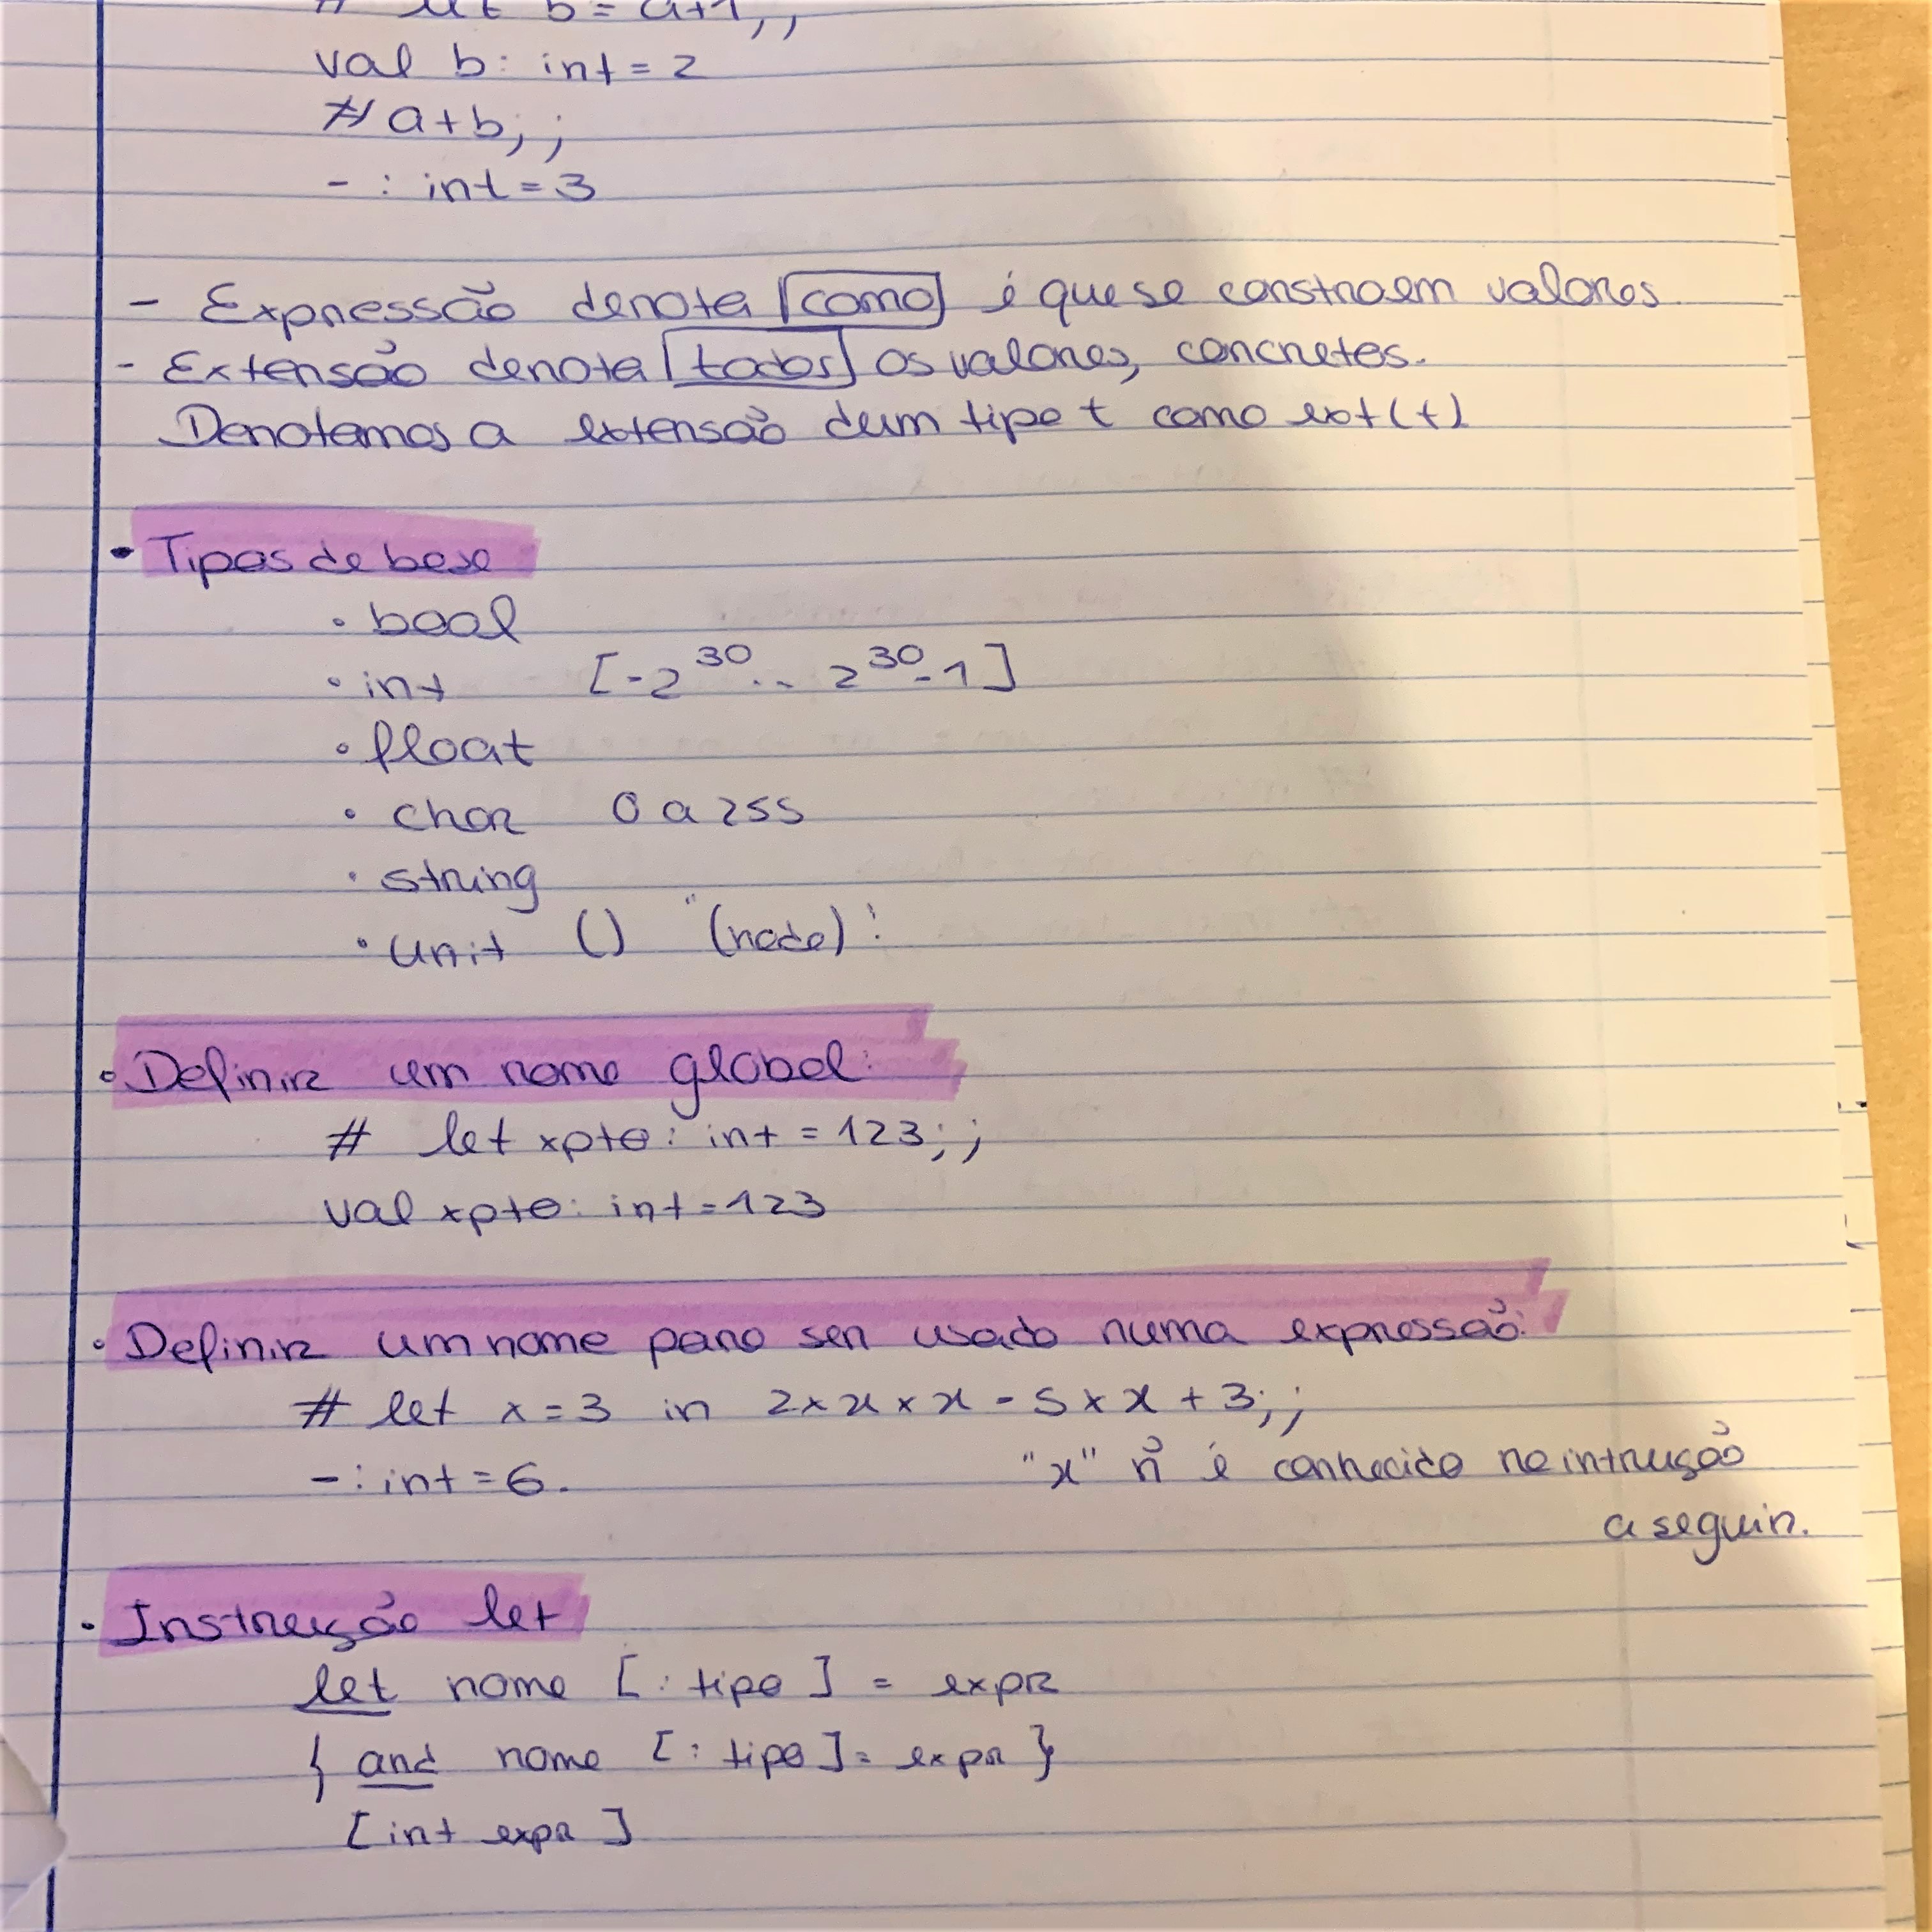 # let b = a+1;;
val b: int = 2
# a+b;;
- : int = 3
- Expressão denota [como] é que se constroem valores
- Extensão denota [todos] os valores, concretos.
Denotamos a extensão dum tipo t como ext(t)
• Tipos de base
• bool
• int [-2^30 .. 2^30-1]
• float
• char 0 a 255
• string
• unit () "(nada)"
• Definir um nome global:
# let xpto: int = 123;;
val xpto: int = 123
• Definir um nome para ser usado numa expressão:
# let x = 3 in 2 x x x x - 5 x x + 3;;
- : int = 6. "x" ñ é conhecido na intrução
a seguir.
• Instrução let
let nome [: tipo] = expr
{ and nome [: tipo] = expr }
[int expr]